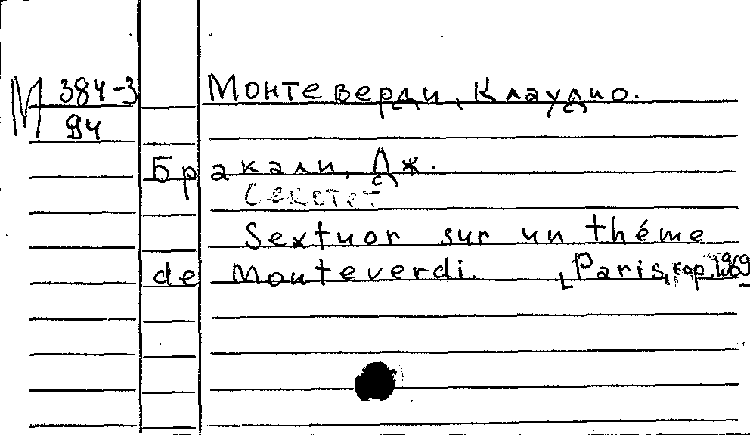 М 384-3
94
Монтеверди, Клаудио.
Бракали, Дж.
Секстет
Sextuor sur un théme
de Monteverdi. Paris, cop. 1969